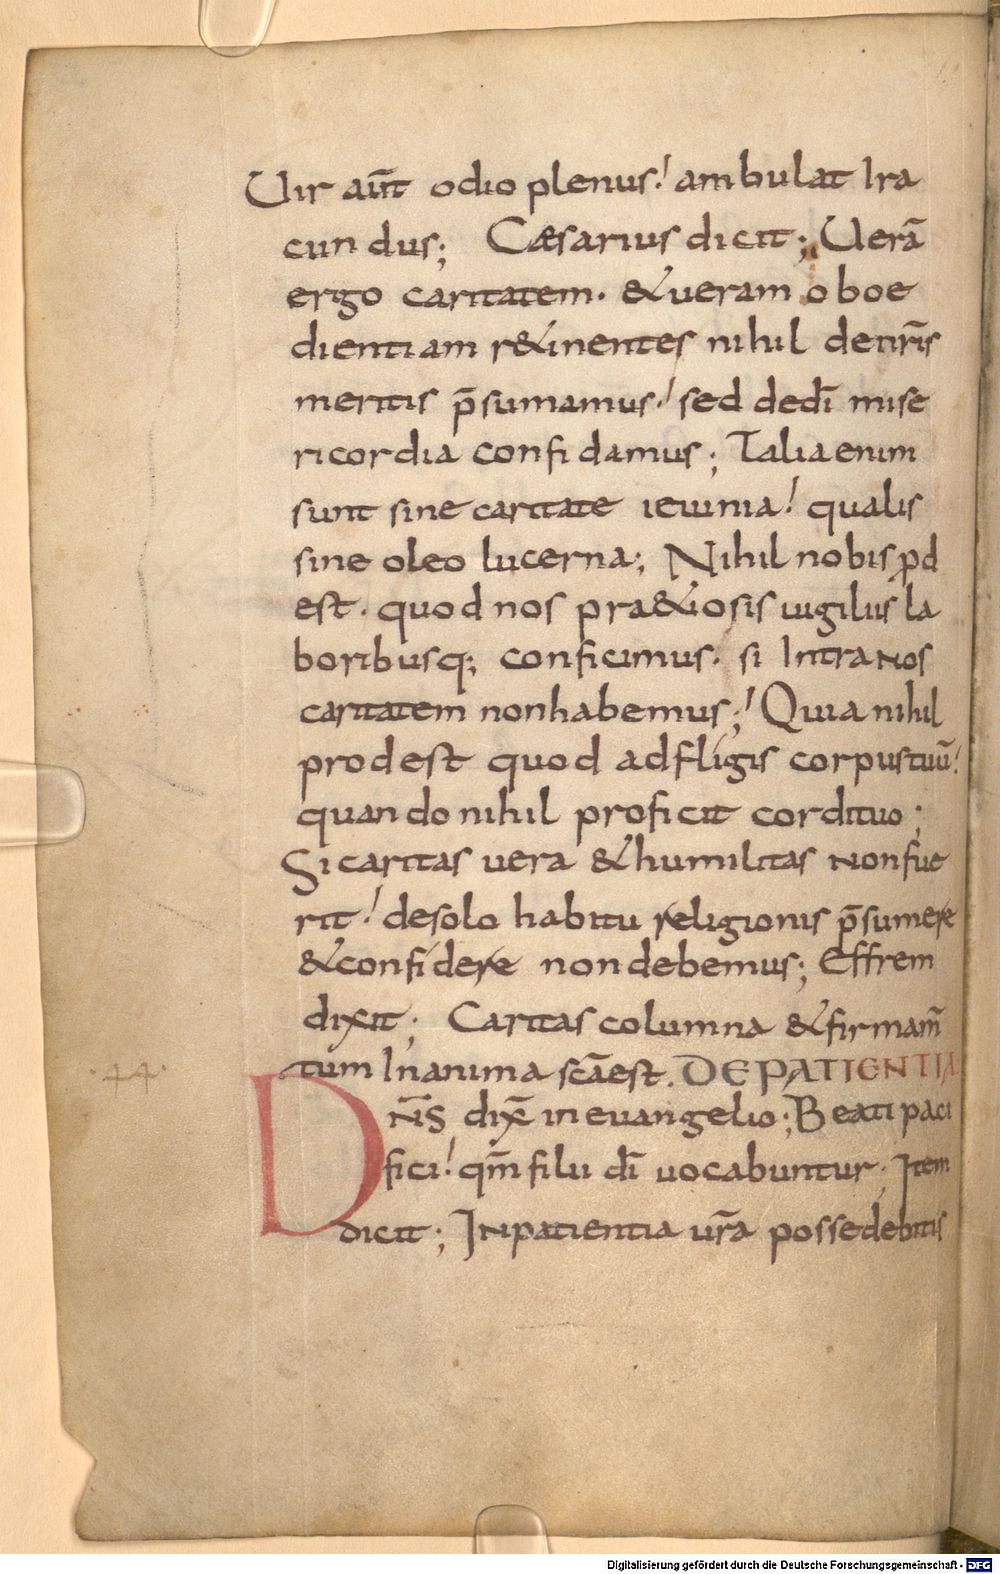 Uir aut̄ odio plenus! ambulat Ira
cundus; Cæsarius dicit; Uerā
ergo caritatem. & ueram oboe
dientiam r&inentes nihil denr̄is
meritis p̄sumamus! sed dedī mise
ricordia confidamus; Talia enim
sunt sine caritate ieiunia! qualis
sine oleo lucerna; Nihil nobis pd
est. quod nos pra&iosis uigiliis la
boribusq; conficimus. si Intra nos
caritatem non habemus;! Quia nihil
prodest quod adfligis corpus tuū!
quando nihil proficit cordi tuo;
Si caritas uera & humilitas non fue
rit! de solo habitu religionis p̄sumere
& confidere non debemus; Effrem
dixit; Caritas columna & firmam̄
tum In anima scā est. DE PATIENTIA
DN̄S dix̄ in euangelio; Beati paci
fici! qm̄ filii dī uocabuntur; Item
dicit; In patientia ur̄a possedebitis
Digitalisierung gefördert durch die Deutsche Forschungsgemeinschaft - DFG